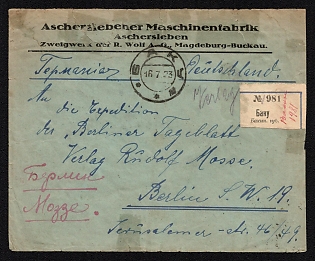 Ascherslebener Maschinenfabrik
Aschersleben
Zweigwerk der R. Wolf A.-G., Magdeburg-Buckau.
Германия Deutschland.
БАКУ
16.7.23
№ 981
Баку
An die Expedition
des „Berliner Tageblatt
Verlag Rudolf Mosse.
Берлин
Berlin S.W. 19.
Моззе.
Jerusalemer-str. 46/49.